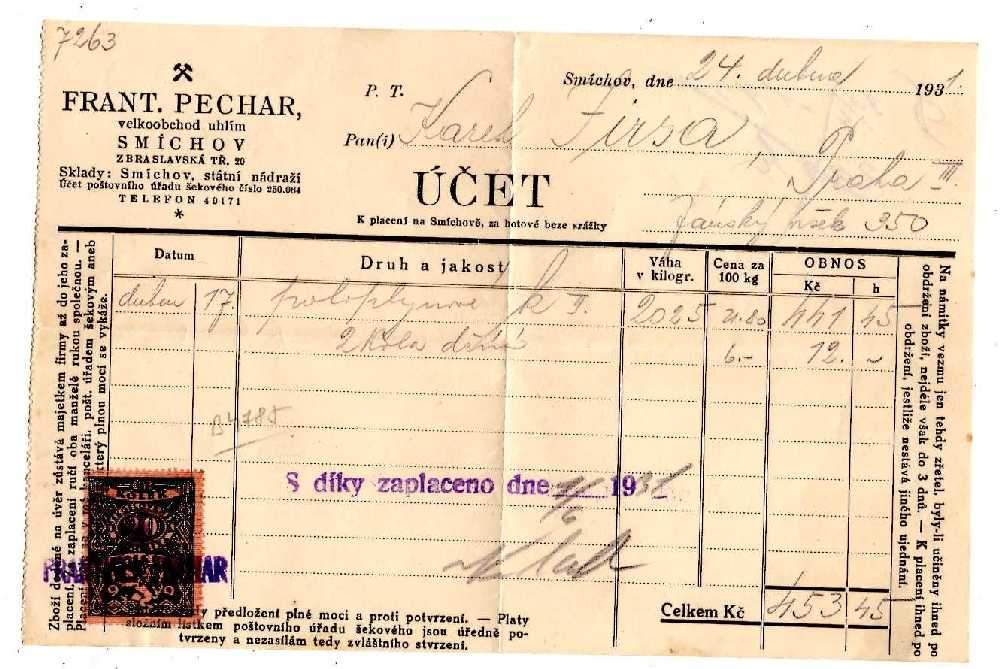 7263
FRANT. PECHAR,
velkoobchod uhlím
SMÍCHOV
ZBRASLAVSKÁ TŘ. 20
Sklady: Smíchov, státní nádraží
Účet poštovního úřadu šekového číslo 250.084
TELEFON 40171
*
Smíchov, dne 24. dubna 1931
P. T.
Pan(i) Karel Firsa,
Praha III.
Jánský vršek 350
ÚČET
K placení na Smíchově, za hotové beze srážky
Datum Druh a jakost Váha v kilogr. Cena za 100 kg OBNOS Kč h
duben 17. poloplynové k I. 2025 21.80 441 45
2 kola 6.- 12. ~
B 4785
S díky zaplaceno dne 1/6 1931
KOLEK
PECHAR
předložení plné moci a proti potvrzení. — Platy
složním lístkem poštovního úřadu šekového jsou úředně po-
tvrzeny a nezasílám tedy zvláštního stvrzení.
Celkem Kč 453 45
Zboží dodané na úvěr zůstává majetkem firmy až do jeho za-
placení. zaplacení ručí oba manželé rukou společnou. —
Placení v kanceláři, pošt. úřadem šekovým aneb
který plnou mocí se vykáže.
Na námitky vezmu jen tehdy zřetel, byly-li učiněny ihned po
obdržení zboží, nejdéle však do 3 dnů. — K placení ihned po
obdržení, jestliže nestává jiného ujednání.